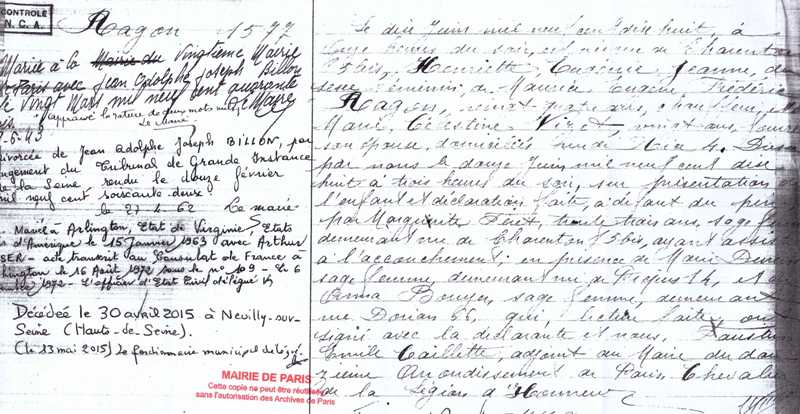 CONTROLÉ
N. C. A.
Ragon 1577
Mariée à la Mairie du Vingtième Mairie
Paris avec Jean Adolphe Joseph Billon
le vingt Mars mil neuf cent quarante
approuvé la rature de deux mots nuls
Le Maire
6.43
divorcée de Jean Adolphe Joseph BILLON, par
jugement du Tribunal de Grande Instance
de la Seine rendu le douze février
mil neuf cent soixante deux
le 27.4.62 Le maire
Marié à Arlington, Etat de Virginie, Etats
d'Amérique le 15 Janvier 1963 avec Arthur
SER - acte transcrit au Consulat de France à
hington le 16 Août 1972 sous le n° 109 - Le 6
1972 - L'officier d'Etat Civil délégué
Décédée le 30 avril 2015 à Neuilly-sur-
Seine (Hauts-de-Seine).
(le 13 mai 2015) Le fonctionnaire municipal délégué
MAIRIE DE PARIS
Cette copie ne peut être réutilisée
sans l'autorisation des Archives de Paris
Le dix Juin mil neuf cent dix huit, à
onze heures du soir, est née rue de Charenton
5 bis, Henriette, Eugénie, Jeanne, du
sexe féminin, de Maurice Eugène Frédéric
Ragon, vingt quatre ans, et de
Marie Célestine Vizet, vingt ans,
son épouse, domiciliés rue 4. Dressé
par nous le douze Juin mil neuf cent dix
huit à trois heures du soir, sur présentation de
l'enfant et déclaration faite, à défaut du père
par Marguerite Féret, trente trois ans, sage femme
demeurant rue de Charenton 5 bis, ayant assisté
à l'accouchement; en présence de Marie
sage femme, demeurant rue de Picpus 14, et de
Anna Bouyer, sage femme, demeurant
rue Dorian 66, qui, lecture faite, ont
signé avec la déclarante et nous, Faustin
Emile Caillette, adjoint au Maire du dou
zième Arrondissement de Paris, Chevalier
de la Légion d'Honneur